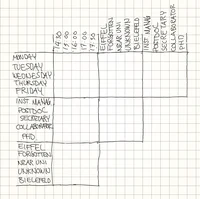 14:30
15:00
16:00
17:00
17:30
EIFFEL
FORGOTTEN
NEAR UNI
UNKNOWN
BIELEFELD
INST MANAG
POSTDOC
SECRETARY
COLLABORATOR
PHD
MONDAY
TUESDAY
WEDNESDAY
THURSDAY
FRIDAY
INST MANAG
POSTDOC
SECRETARY
COLLABORATOR
PHD
EIFFEL
FORGOTTEN
NEAR UNI
UNKNOWN
BIELEFELD